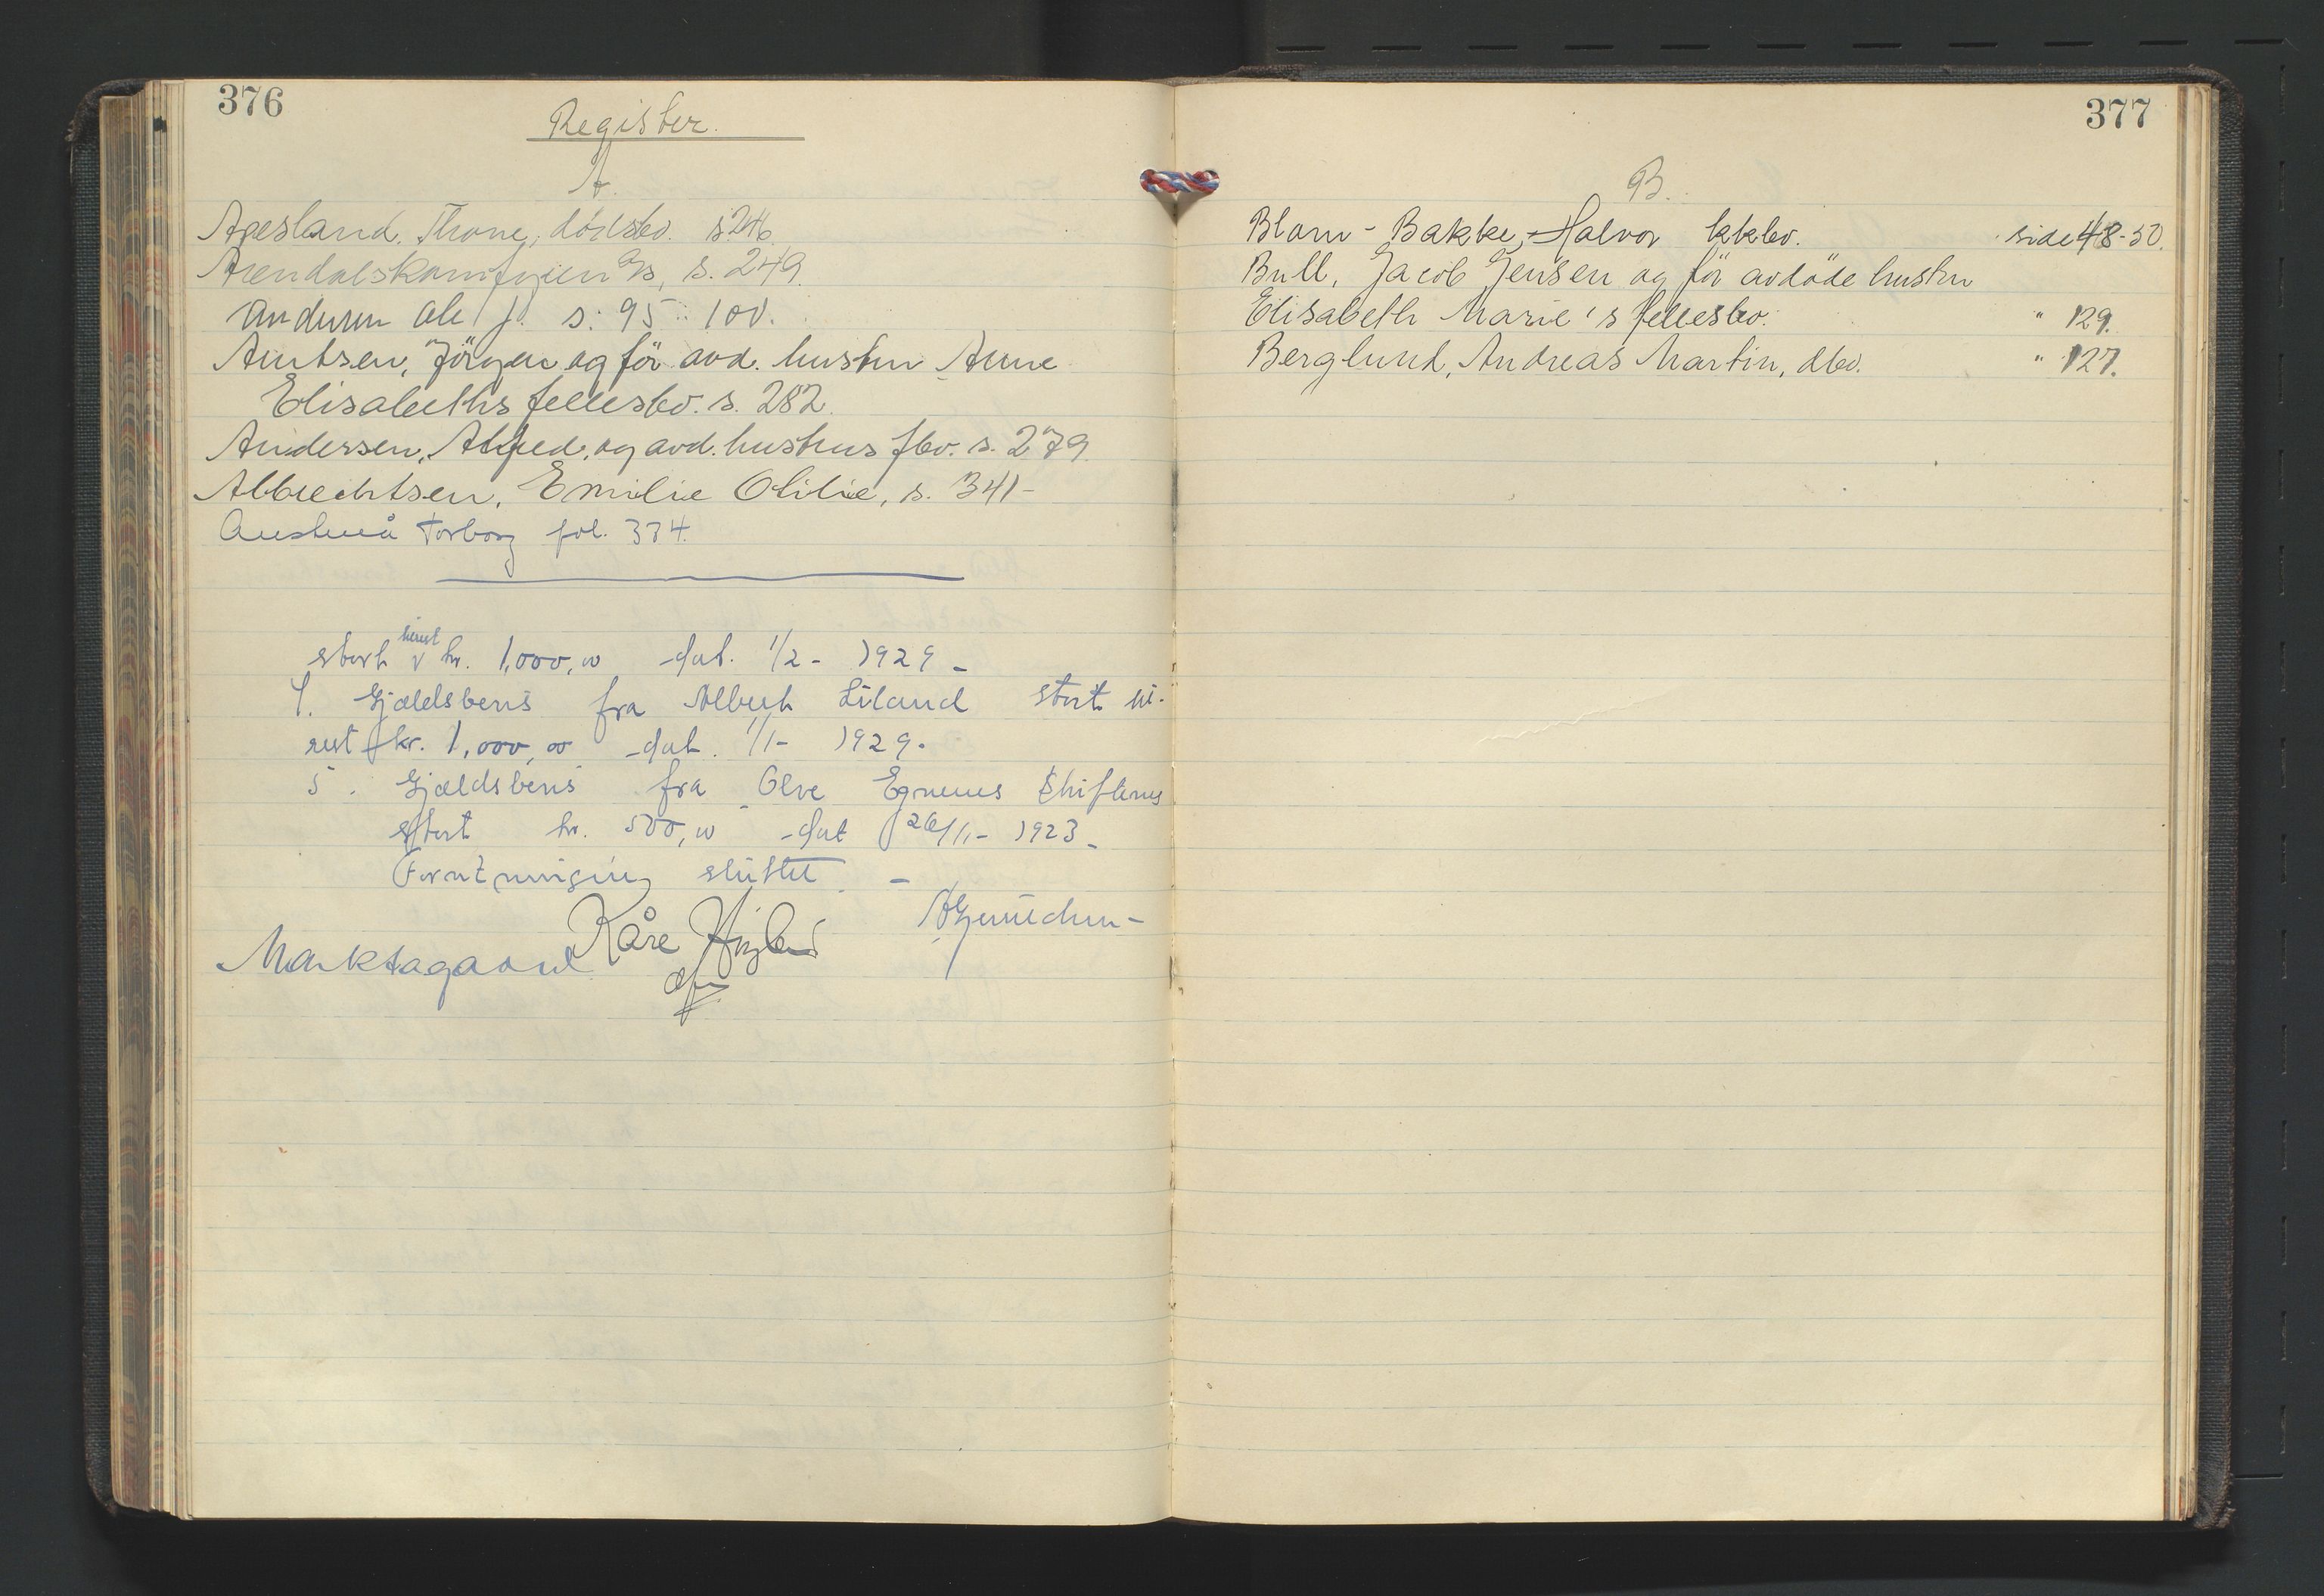 376
Register.
A.
Agesland. Thone, dödsbo. s 246.
Arendalskomfyren A/s, s. 249.
Andersen Ole J. s: 95 : 100.
Arntsen, Jörgen og för avd. hustru Anne
Elisabeths fellesbo. s. 282.
Andersen, Alfred, og avd. hustrus fbo. s. 279
Albrechtsen, Emilie Otilie, s. 341-
Torborg fol. 334.
stort kr. 1,000,00 dat. 1/2 - 1929 -
Gjældsbevis fra Albert Liland stort ui-
rest kr. 1,000,00 dat. 1/1- 1929.
5. Gjældsbevis fra Olve
stort kr. 500,00 dat 26/11- 1923 -
sluttet. -
Kåre
377
B.
Blom - Bakke, Halvor kkbo. side 48-50.
Bull, Jacob Jensen og för avdöde hustru
Elisabeth Marie's fellesbo. " 129.
Berglund, Andreas Martin, dbo. " 127.